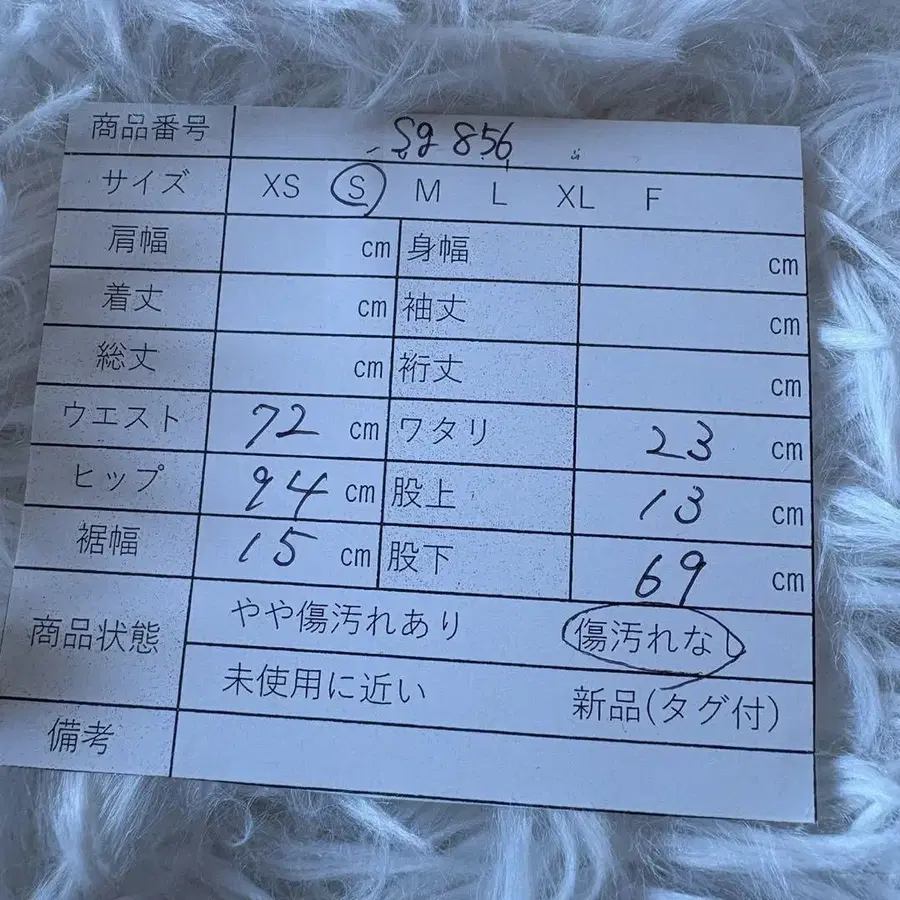 商品番号 Sg 856
サイズ XS S M L XL F
肩幅 cm 身幅 cm
着丈 cm 袖丈 cm
総丈 cm 裄丈 cm
ウエスト 72 cm ワタリ 23 cm
ヒップ 94 cm 股上 13 cm
裾幅 15 cm 股下 69 cm
商品状態 やや傷汚れあり 傷汚れなし
未使用に近い 新品(タグ付)
備考